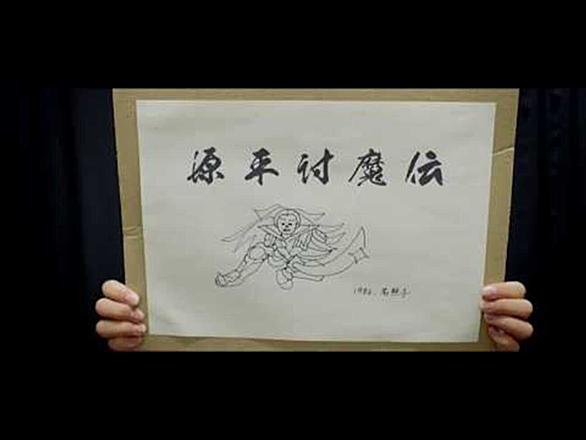 源平討魔伝
1986.